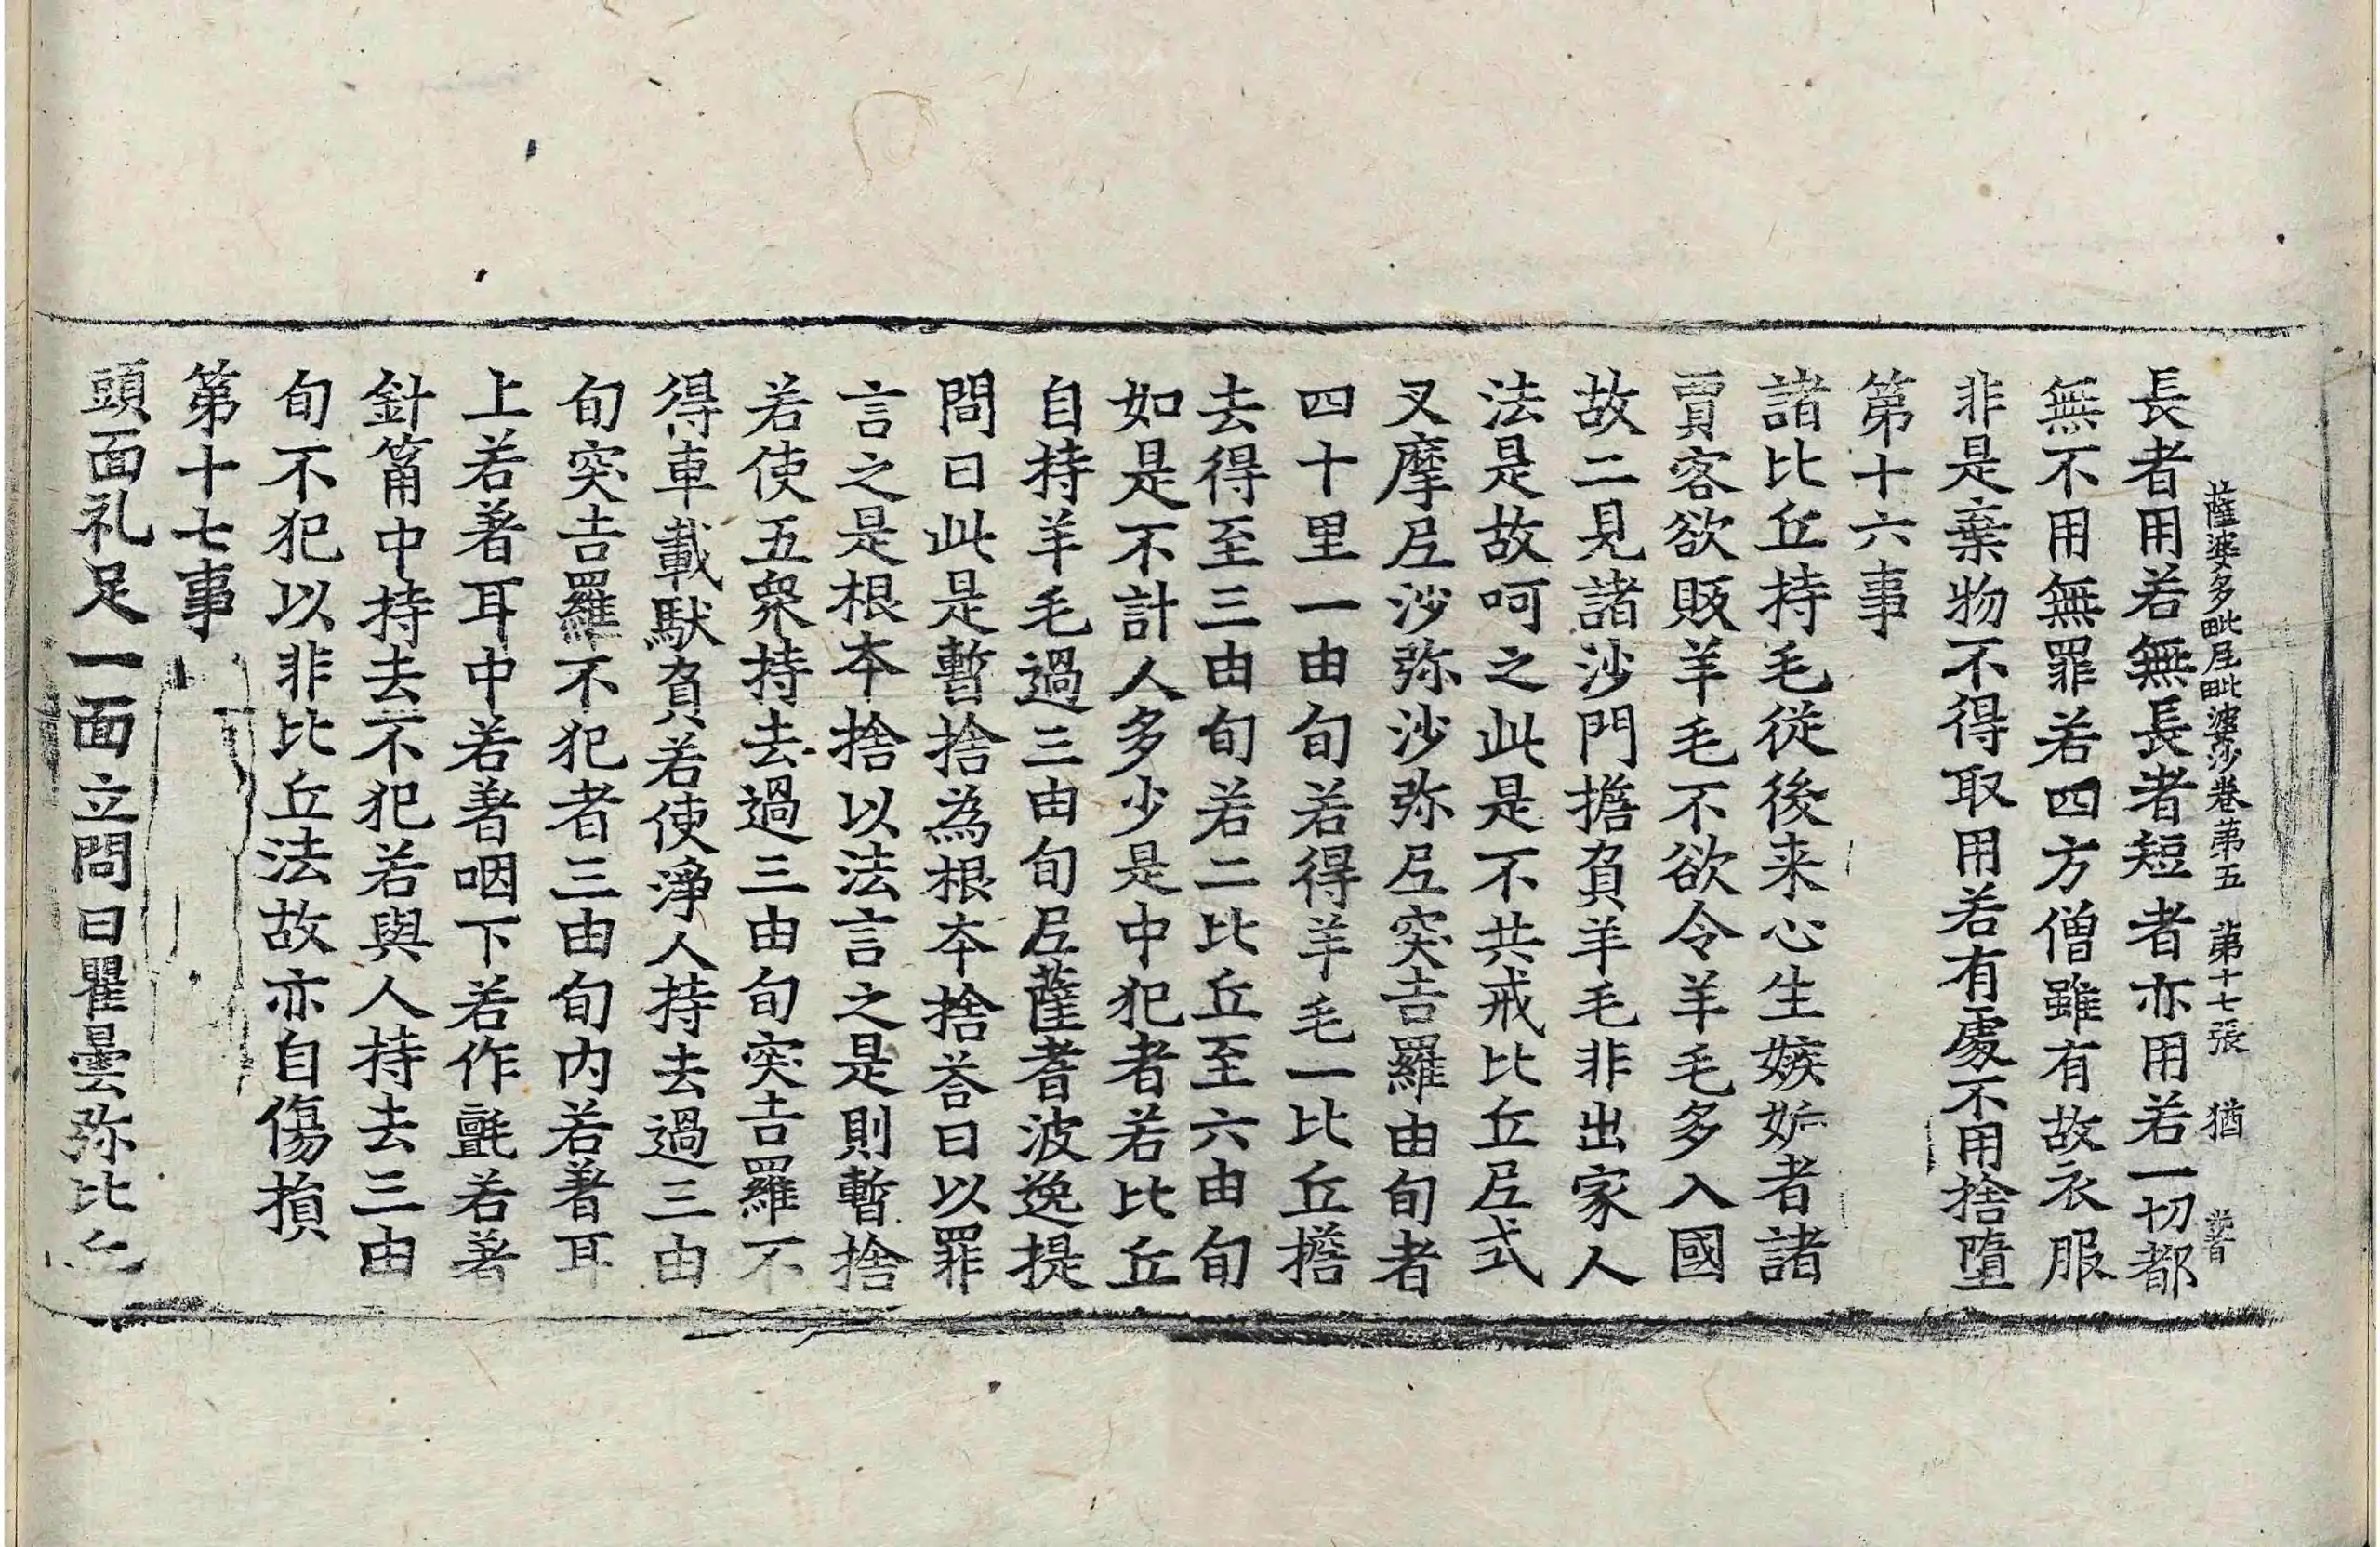 薩婆多毗尼毗婆沙卷第五 第十七張 猶
長者用若無長者短者亦用若一切都
無不用無罪若四方僧雖有故衣服
非是棄物不得取用若有處不用捨墮
第十六事
諸比丘持毛從後来心生嫉妬者諸
賈客欲販羊毛不欲令羊毛多入國
故二見諸沙門擔負羊毛非出家人
法是故呵之此是不共戒比丘尼式
叉摩尼沙弥沙弥尼突吉羅由旬者
四十里一由旬若得羊毛一比丘擔
去得至三由旬若二比丘至六由旬
如是不計人多少是中犯者若比丘
自持羊毛過三由旬尼薩耆波逸提
問曰此是暫捨為根本捨荅曰以罪
言之是根本捨以法言之是則暫捨
若使五眾持去過三由旬突吉羅不
得車載馱負若使淨人持去過三由
旬突吉羅不犯者三由旬内若著耳
上若著耳中若著咽下若作氈若著
針筩中持去不犯若與人持去三由
旬不犯以非比丘法故亦自傷損
第十七事
頭面礼足一面立問曰瞿曇弥比丘